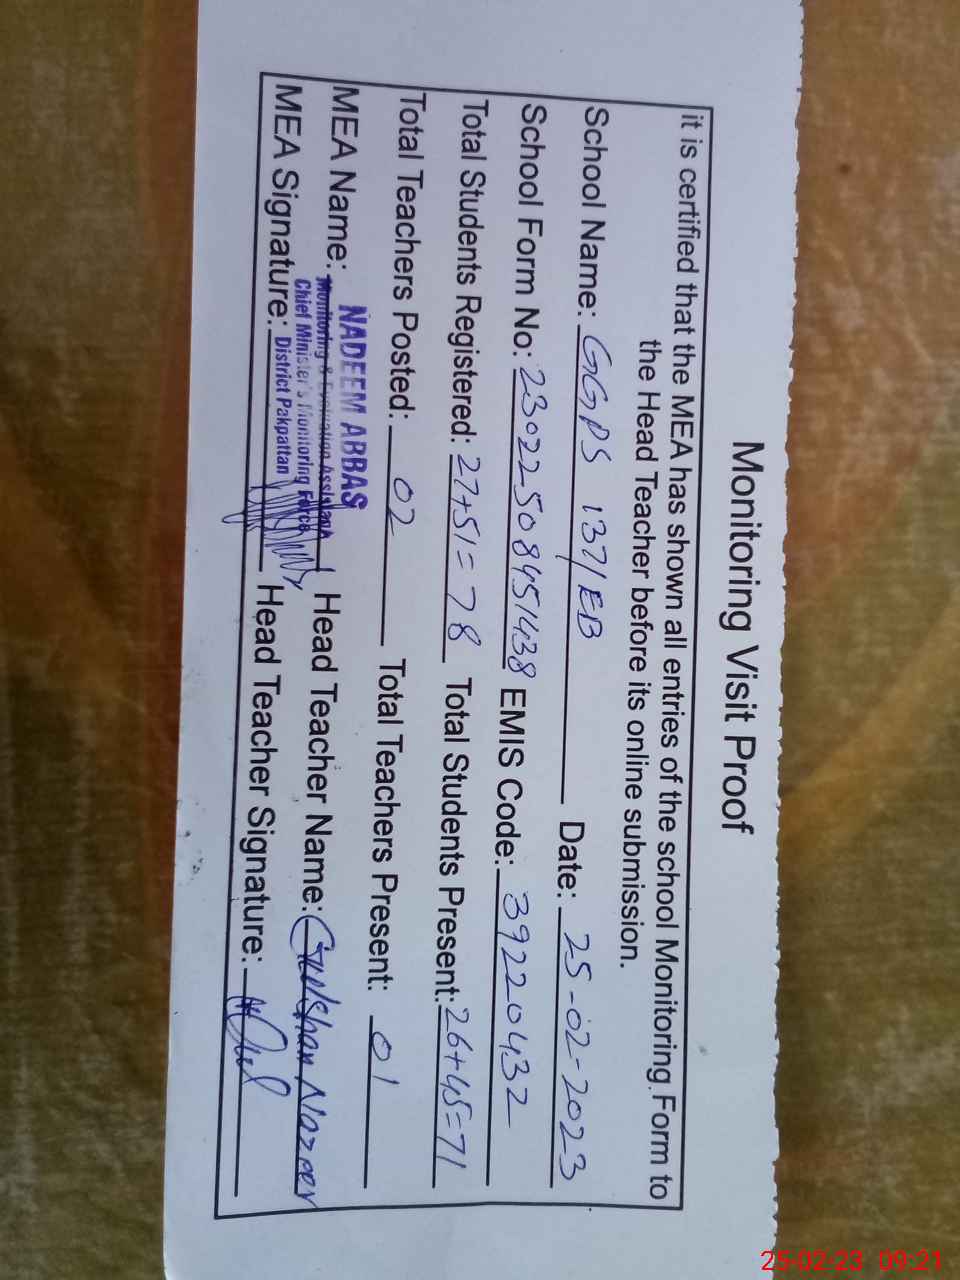 Monitoring Visit Proof
it is certified that the MEA has shown all entries of the school Monitoring Form to
the Head Teacher before its online submission.
School Name: GGPS 137/EB Date: 25-02-2023
School Form No: 23022508451438 EMIS Code: 39220432
Total Students Registered: 27+51=78 Total Students Present: 26+45=71
Total Teachers Posted: 02 Total Teachers Present: 01
MEA Name: NADEEM ABBAS Head Teacher Name: Gulshan Nazeer
Monitoring & Evaluation Assistant
Chief Minister's Monitoring Force
MEA Signature: District Pakpattan Head Teacher Signature:
25-02-23 09:21